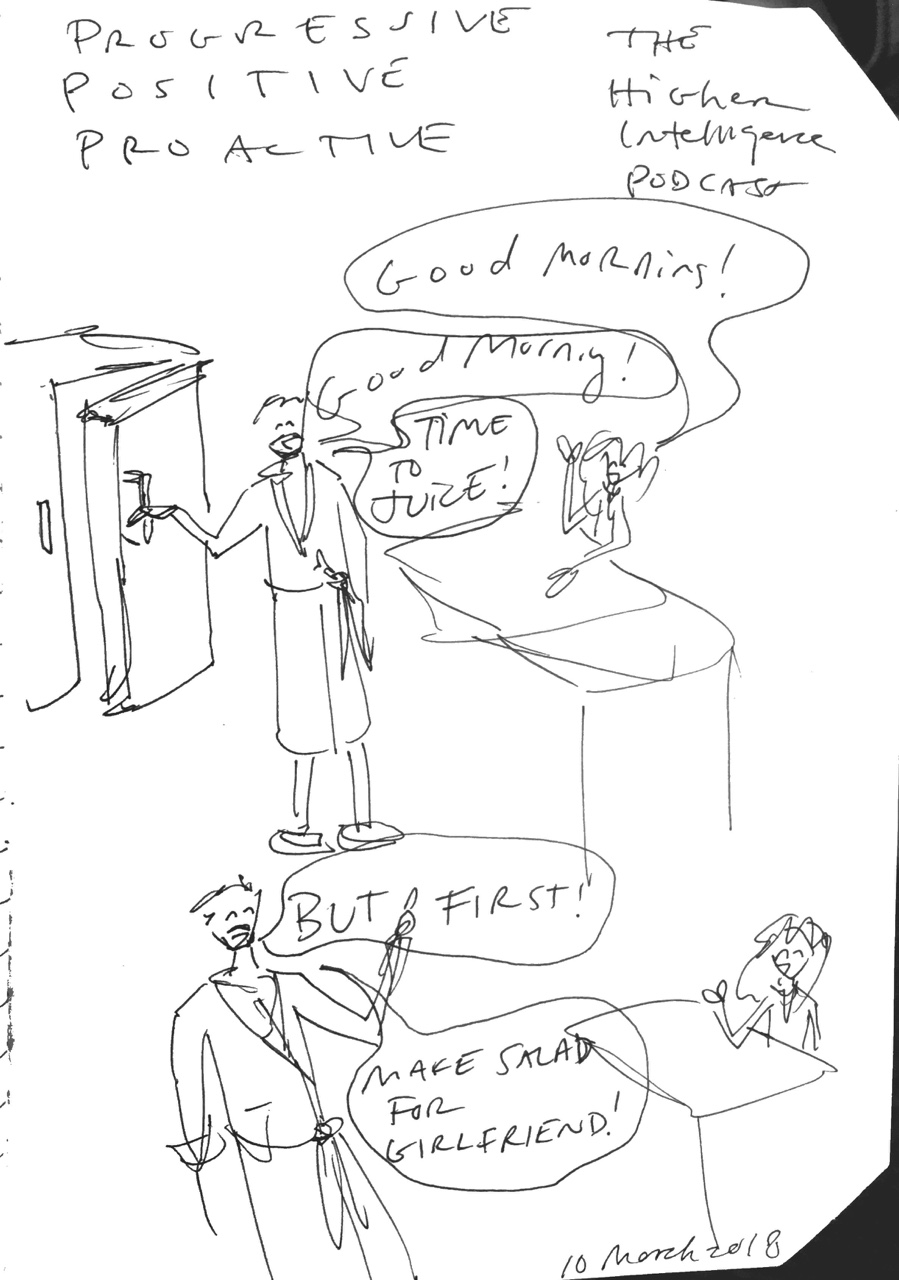 PROGRESSIVE
POSITIVE
PROACTIVE
THE
Higher
Intelligence
PODCAST
Good Morning!
Good Mornig!
TIME
TO
JUICE!
BUT FIRST!
MAKE SALAD
FOR
GIRLFRIEND!
10 March 2018